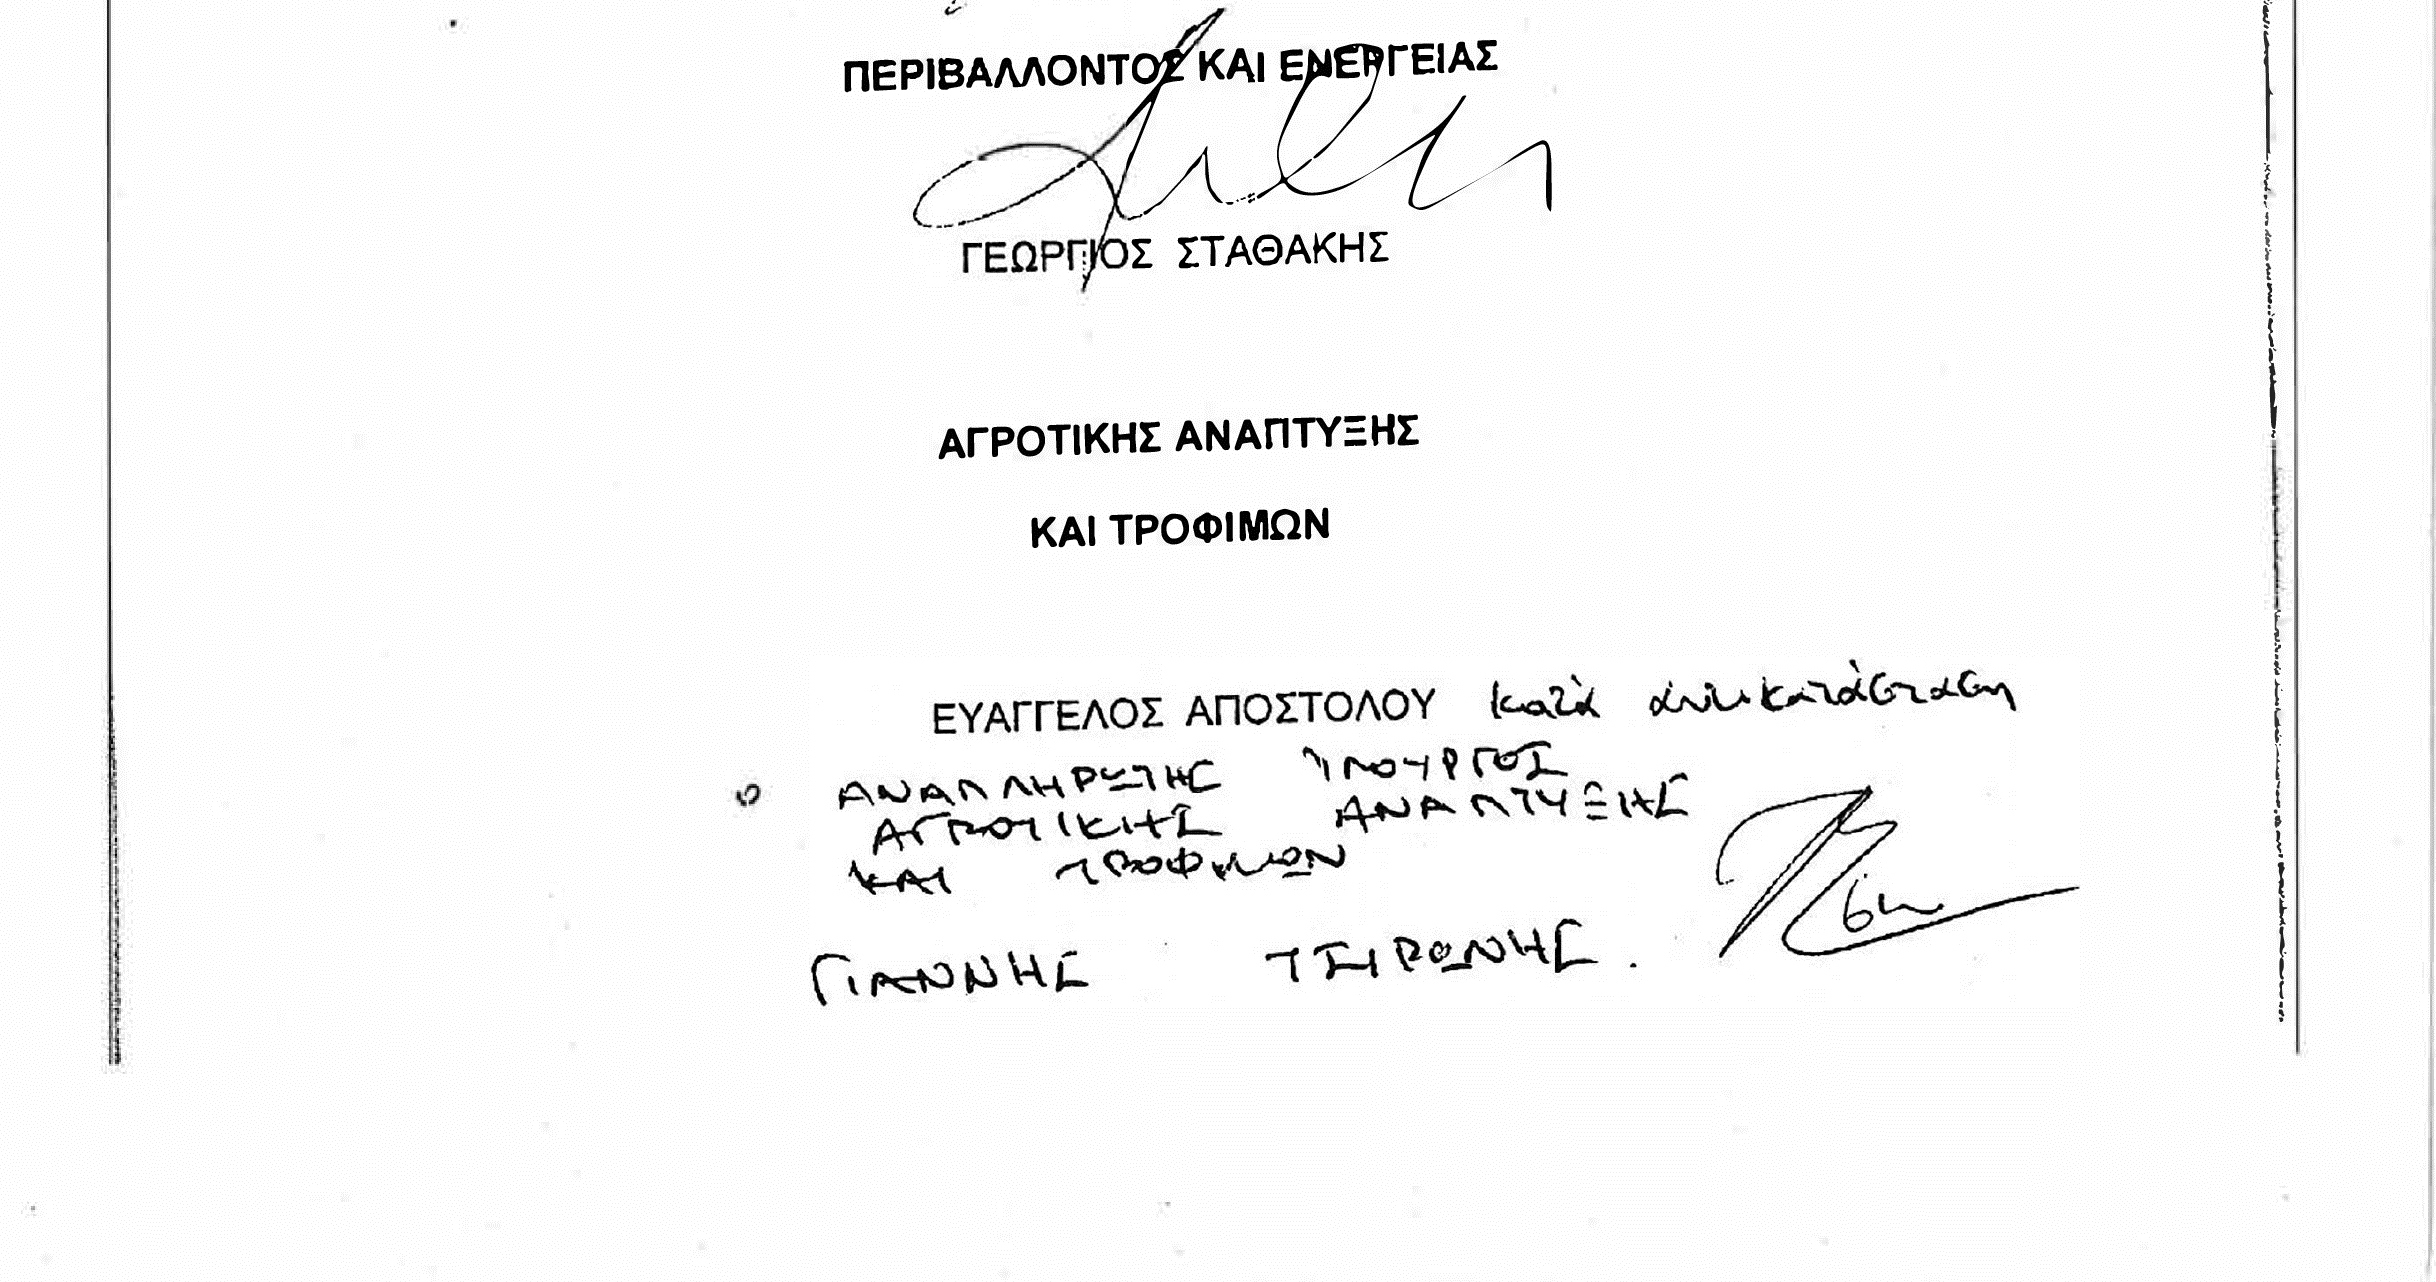 ΠΕΡΙΒΑΛΛΟΝΤΟΣ ΚΑΙ ΕΝΕΡΓΕΙΑΣ
ΓΕΩΡΓΙΟΣ ΣΤΑΘΑΚΗΣ
ΑΓΡΟΤΙΚΗΣ ΑΝΑΠΤΥΞΗΣ
ΚΑΙ ΤΡΟΦΙΜΩΝ
ΕΥΑΓΓΕΛΟΣ ΑΠΟΣΤΟΛΟΥ κατά αντικατάσταση
ο ΑΝΑΠΛΗΡΩΤΗΣ ΥΠΟΥΡΓΟΣ
ΑΓΡΟΤΙΚΗΣ ΑΝΑΠΤΥΞΗΣ
ΚΑΙ ΤΡΟΦΙΜΩΝ
ΓΙΑΝΝΗΣ ΤΣΙΡΩΝΗΣ.